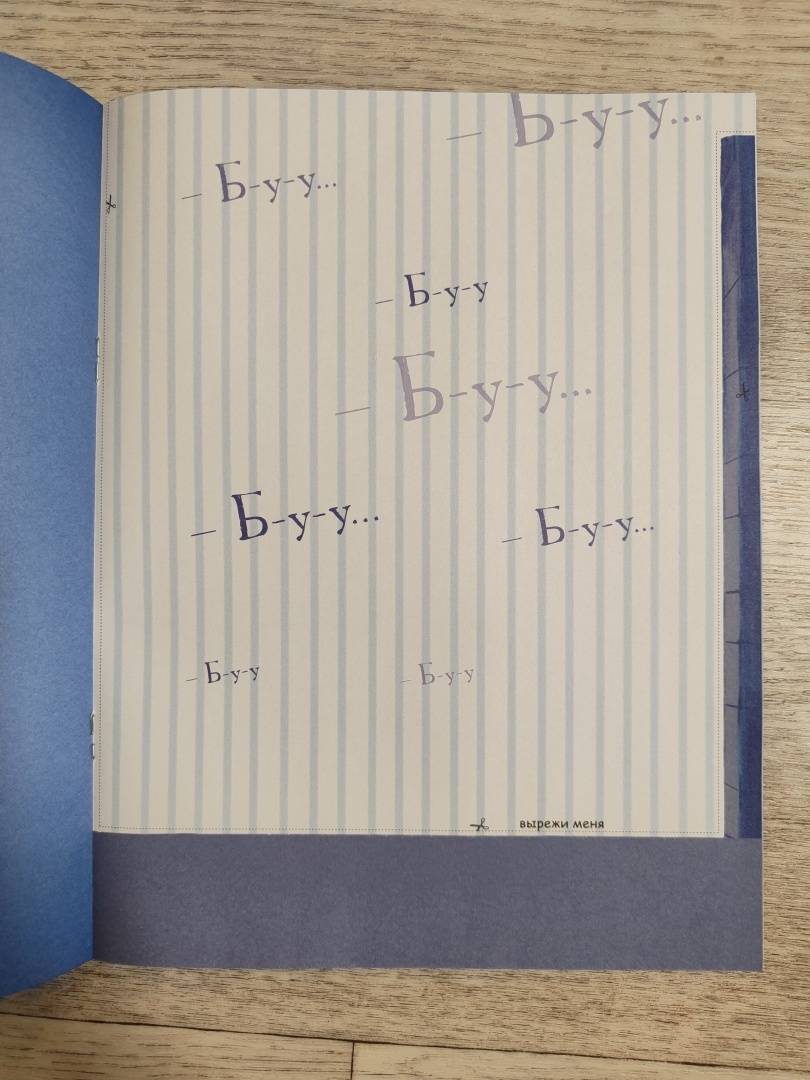 – Б-у-у...
– Б-у-у...
– Б-у-у
– Б-у-у...
– Б-у-у...
– Б-у-у...
– Б-у-у
– Б-у-у
вырежи меня